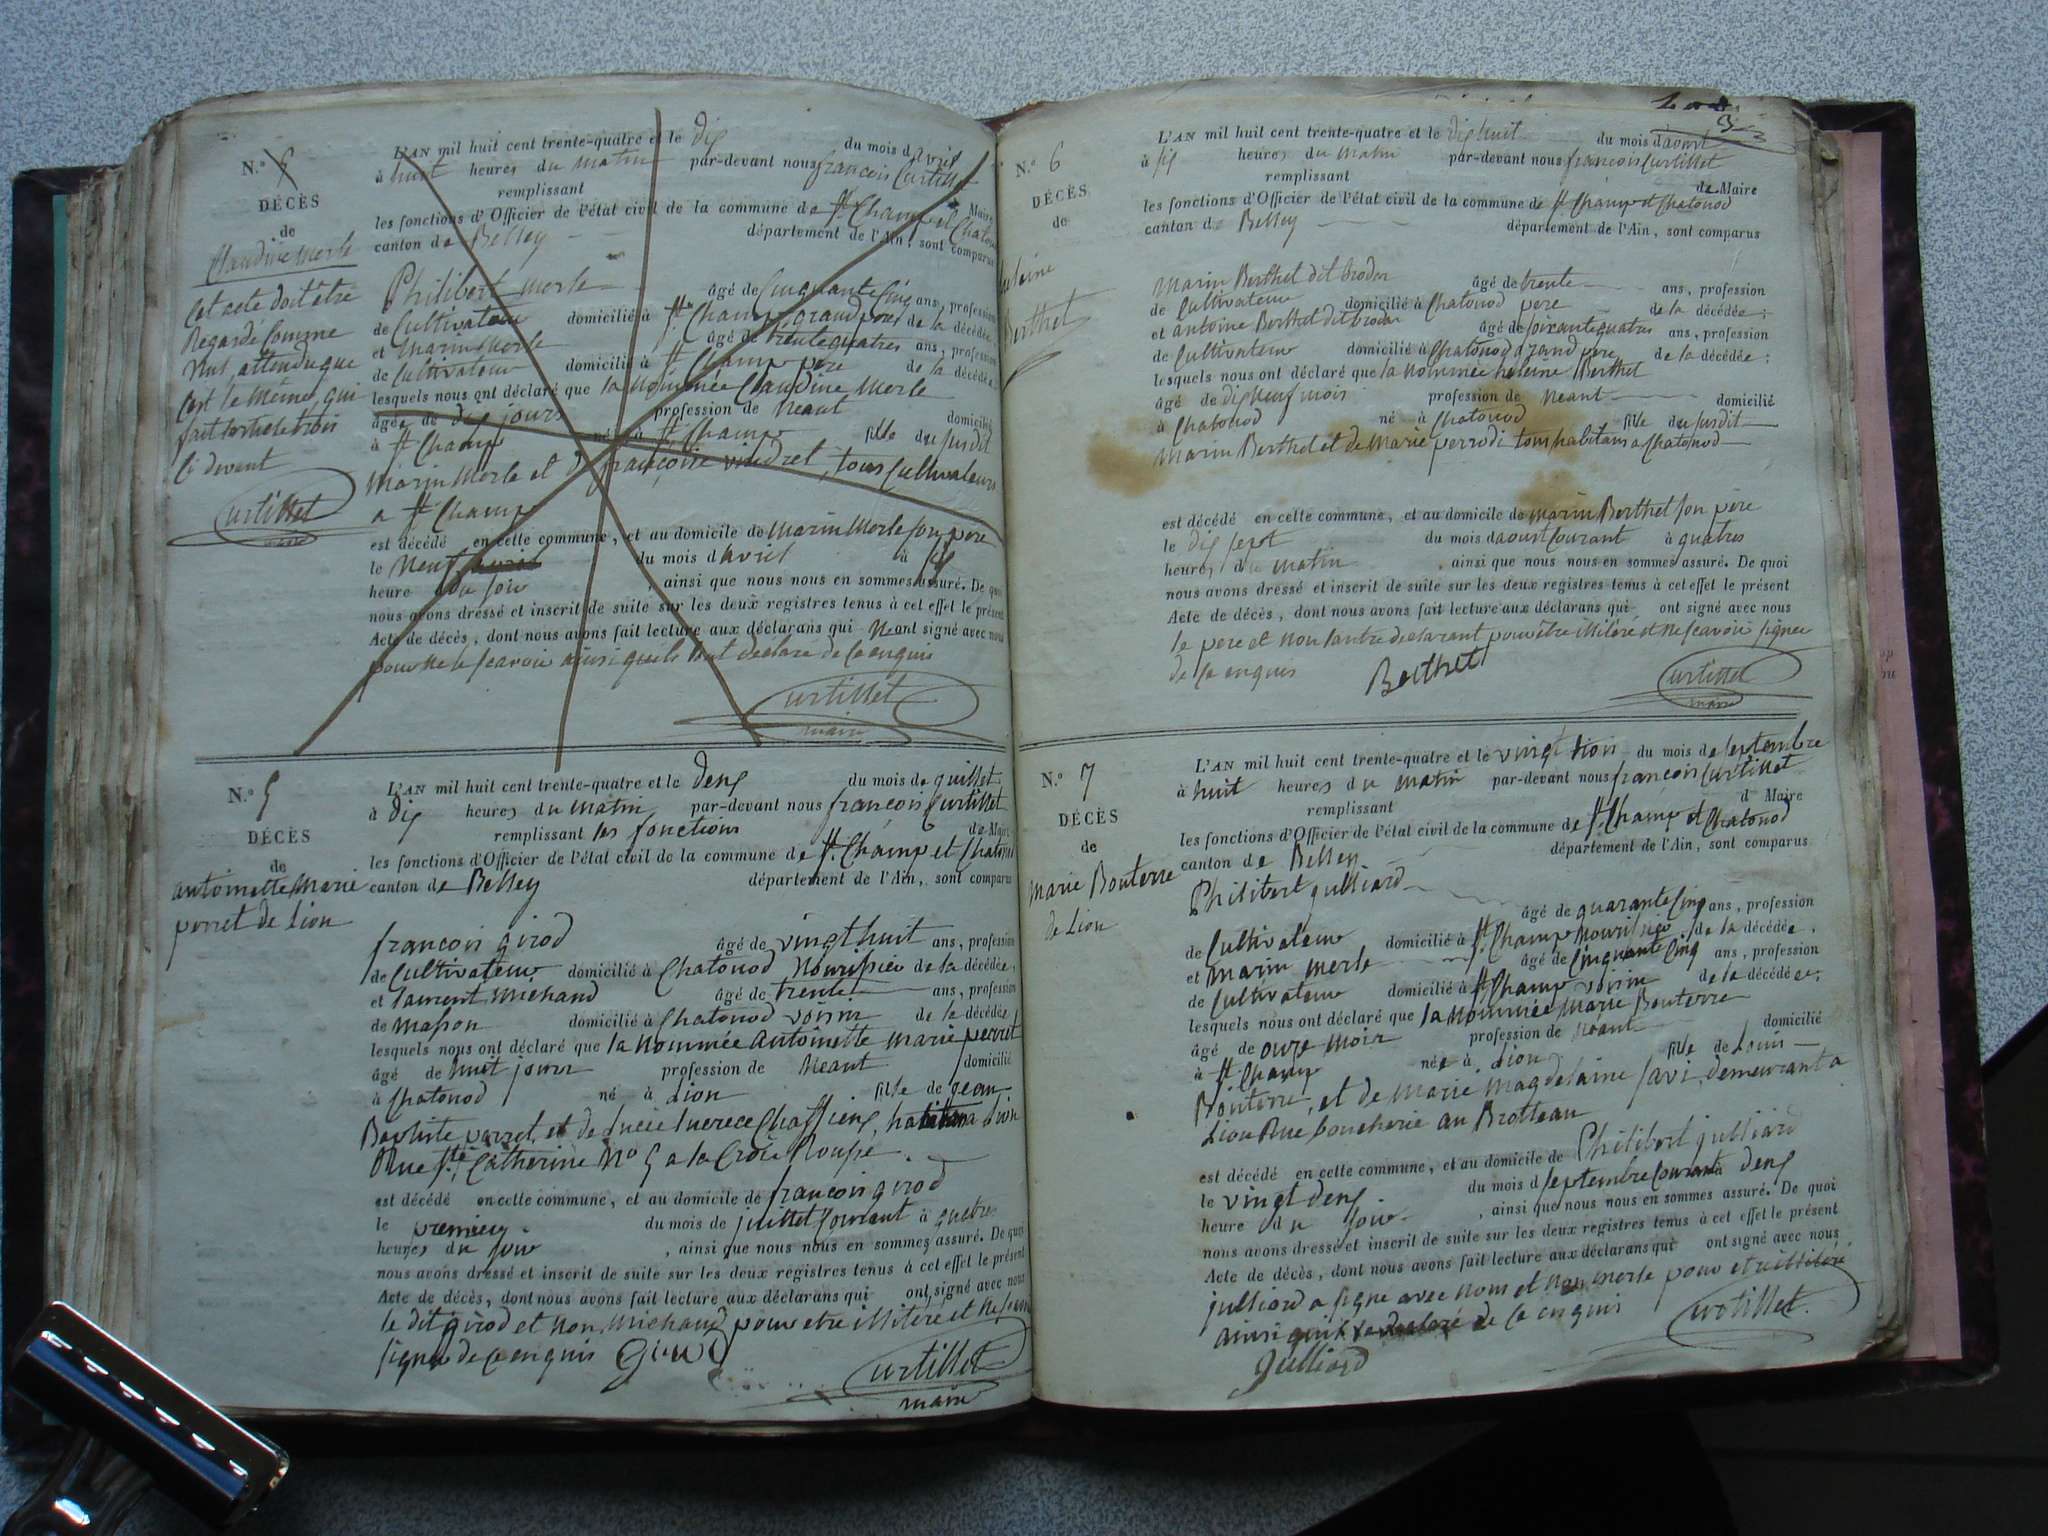 N.º
DÉCÈS
de
Claudine Merle
Cet acte doit être
Regardé Comme
Nul attendu que
C'est le Même qui
fait
Ci devant
Curtillet
maire
L'AN mil huit cent trente-quatre et le dix du mois d'avril
à huit heures du matin par-devant nous françois Curtillet
remplissant Maire
les fonctions d'Officier de l'état civil de la commune de St. Champ et Chatonod
canton de Belley département de l'Ain, sont comparus
Philibert merle âgé de Cinquante Cinq ans, profession
de Cultivateur domicilié à St. Champ grand père de la décédée
et Marin Merle âgé de trente quatres ans, profession
de Cultivateur domicilié à St Champ père de la décédée
lesquels nous ont déclaré que la Nommée Claudine Merle
âgée de dix jours profession de Neant domicilié
à St Champ né à St. Champ fille du susdit
Marin Merle et de françoise vindret, tous Cultivateurs
a St Champ
est décédé en cette commune, et au domicile de Marin Merle son père
le Neuf du mois d'avril à six
heure du soir , ainsi que nous nous en sommes assuré. De quoi
nous avons dressé et inscrit de suite sur les deux registres tenus à cet effet le présent
Acte de décès, dont nous avons fait lecture aux déclarans qui Neont signé avec nous
pour ne le scavoir ainsi quils l'ont declare de ce enquis
Curtillet
maire
N.º 5
DÉCÈS
de
antoinette Marie
perret de Lion
L'AN mil huit cent trente-quatre et le deux du mois de juillet
à dix heures du matin par-devant nous françois Curtillet
remplissant les fonctions de Maire
les fonctions d'Officier de l'état civil de la commune de St. Champ et Chatonod
canton de Belley département de l'Ain, sont comparus
françois girod âgé de vingt huit ans, profession
de Cultivateur domicilié à Chatonod Nourissier de la décédée,
et laurent Michaud âgé de trente ans, profession
de Masson domicilié à Chatonod voisin de la décédée
lesquels nous ont déclaré que la Nommée Antoinette Marie perret
âgé de huit jours profession de Neant domicilié
à Chatonod né à Lion fille de Jean
Baptiste perret et de lucrece habitans a Lion
Rue Ste. Catherine No 5 a la Croix Rousse.
est décédé en cette commune, et au domicile de françois girod
le premier du mois de juillet Courant à quatres
heures du soir , ainsi que nous nous en sommes assuré. De quoi
nous avons dressé et inscrit de suite sur les deux registres tenus à cet effet le présent
Acte de décès, dont nous avons fait lecture aux déclarans qui ont signé avec nous
le dit girod et Non Michaud pour etre illitéré et Ne scavoir
signer de ce enquis Girod
Curtillet
maire
3
N.º 6
DÉCÈS
de
Berthet
L'AN mil huit cent trente-quatre et le dix huit du mois d'aoust
à six heures du matin par-devant nous françois Curtillet
remplissant de Maire
les fonctions d'Officier de l'état civil de la commune de St. Champ et Chatonod
canton de Belley département de l'Ain, sont comparus
Marin Berthet dit brodin âgé de trente ans, profession
de Cultivateur domicilié à Chatonod pere de la décédée;
et antoine Berthet dit brodin âgé de soixante quatres ans, profession
de Cultivateur domicilié à Chatonod grand pere de la décédée;
lesquels nous ont déclaré que la Nommée heleine Berthet
âgé de dix Neuf mois profession de Neant domicilié
à Chatonod né à Chatonod fille du susdit
Marin Berthet et de Marie perrodi tous habitans a Chatonod
est décédé en cette commune, et au domicile de Marin Berthet son père
le dix sept du mois d'aoust Courant à quatres
heures du Matin , ainsi que nous nous en sommes assuré. De quoi
nous avons dressé et inscrit de suite sur les deux registres tenus à cet effet le présent
Acte de décès, dont nous avons fait lecture aux déclarans qui ont signé avec nous
le pere et Non l'autre declarant pour être illitéré et Ne scavoir signer
de ce enquis Berthet
Curtillet
maire
N.º 7
DÉCÈS
de
Marie Bouterre
de Lion
L'AN mil huit cent trente-quatre et le vingt trois du mois de septembre
à huit heures du matin par-devant nous françois Curtillet
remplissant d Maire
les fonctions d'Officier de l'état civil de la commune de St. Champ et Chatonod
canton de Belley département de l'Ain, sont comparus
Philibert julliard âgé de quarante Cinq ans, profession
de Cultivateur domicilié à St. Champ Nourissier de la décédée,
et Marin Merle âgé de Cinquante Cinq ans, profession
de Cultivateur domicilié à St Champ voisin de la décédée;
lesquels nous ont déclaré que la Nommée Marie Bouterre
âgé de onze Mois profession de Neant domicilié
à St. Champ née à Lion fille de Louis
Bouterre, et de Marie Magdelaine Savi, demeurant a
Lion Rue boucherie au Brotteau
est décédé en cette commune, et au domicile de Philibert julliard
le vingt deux du mois d septembre Courant à deux
heure du soir , ainsi que nous nous en sommes assuré. De quoi
nous avons dressé et inscrit de suite sur les deux registres tenus à cet effet le présent
Acte de décès, dont nous avons fait lecture aux déclarans qui ont signé avec nous
julliard a signe avec Nous et Non Merle pour etre illitéré
ainsi qu'il declaré de ce enquis Curtillet
Julliard